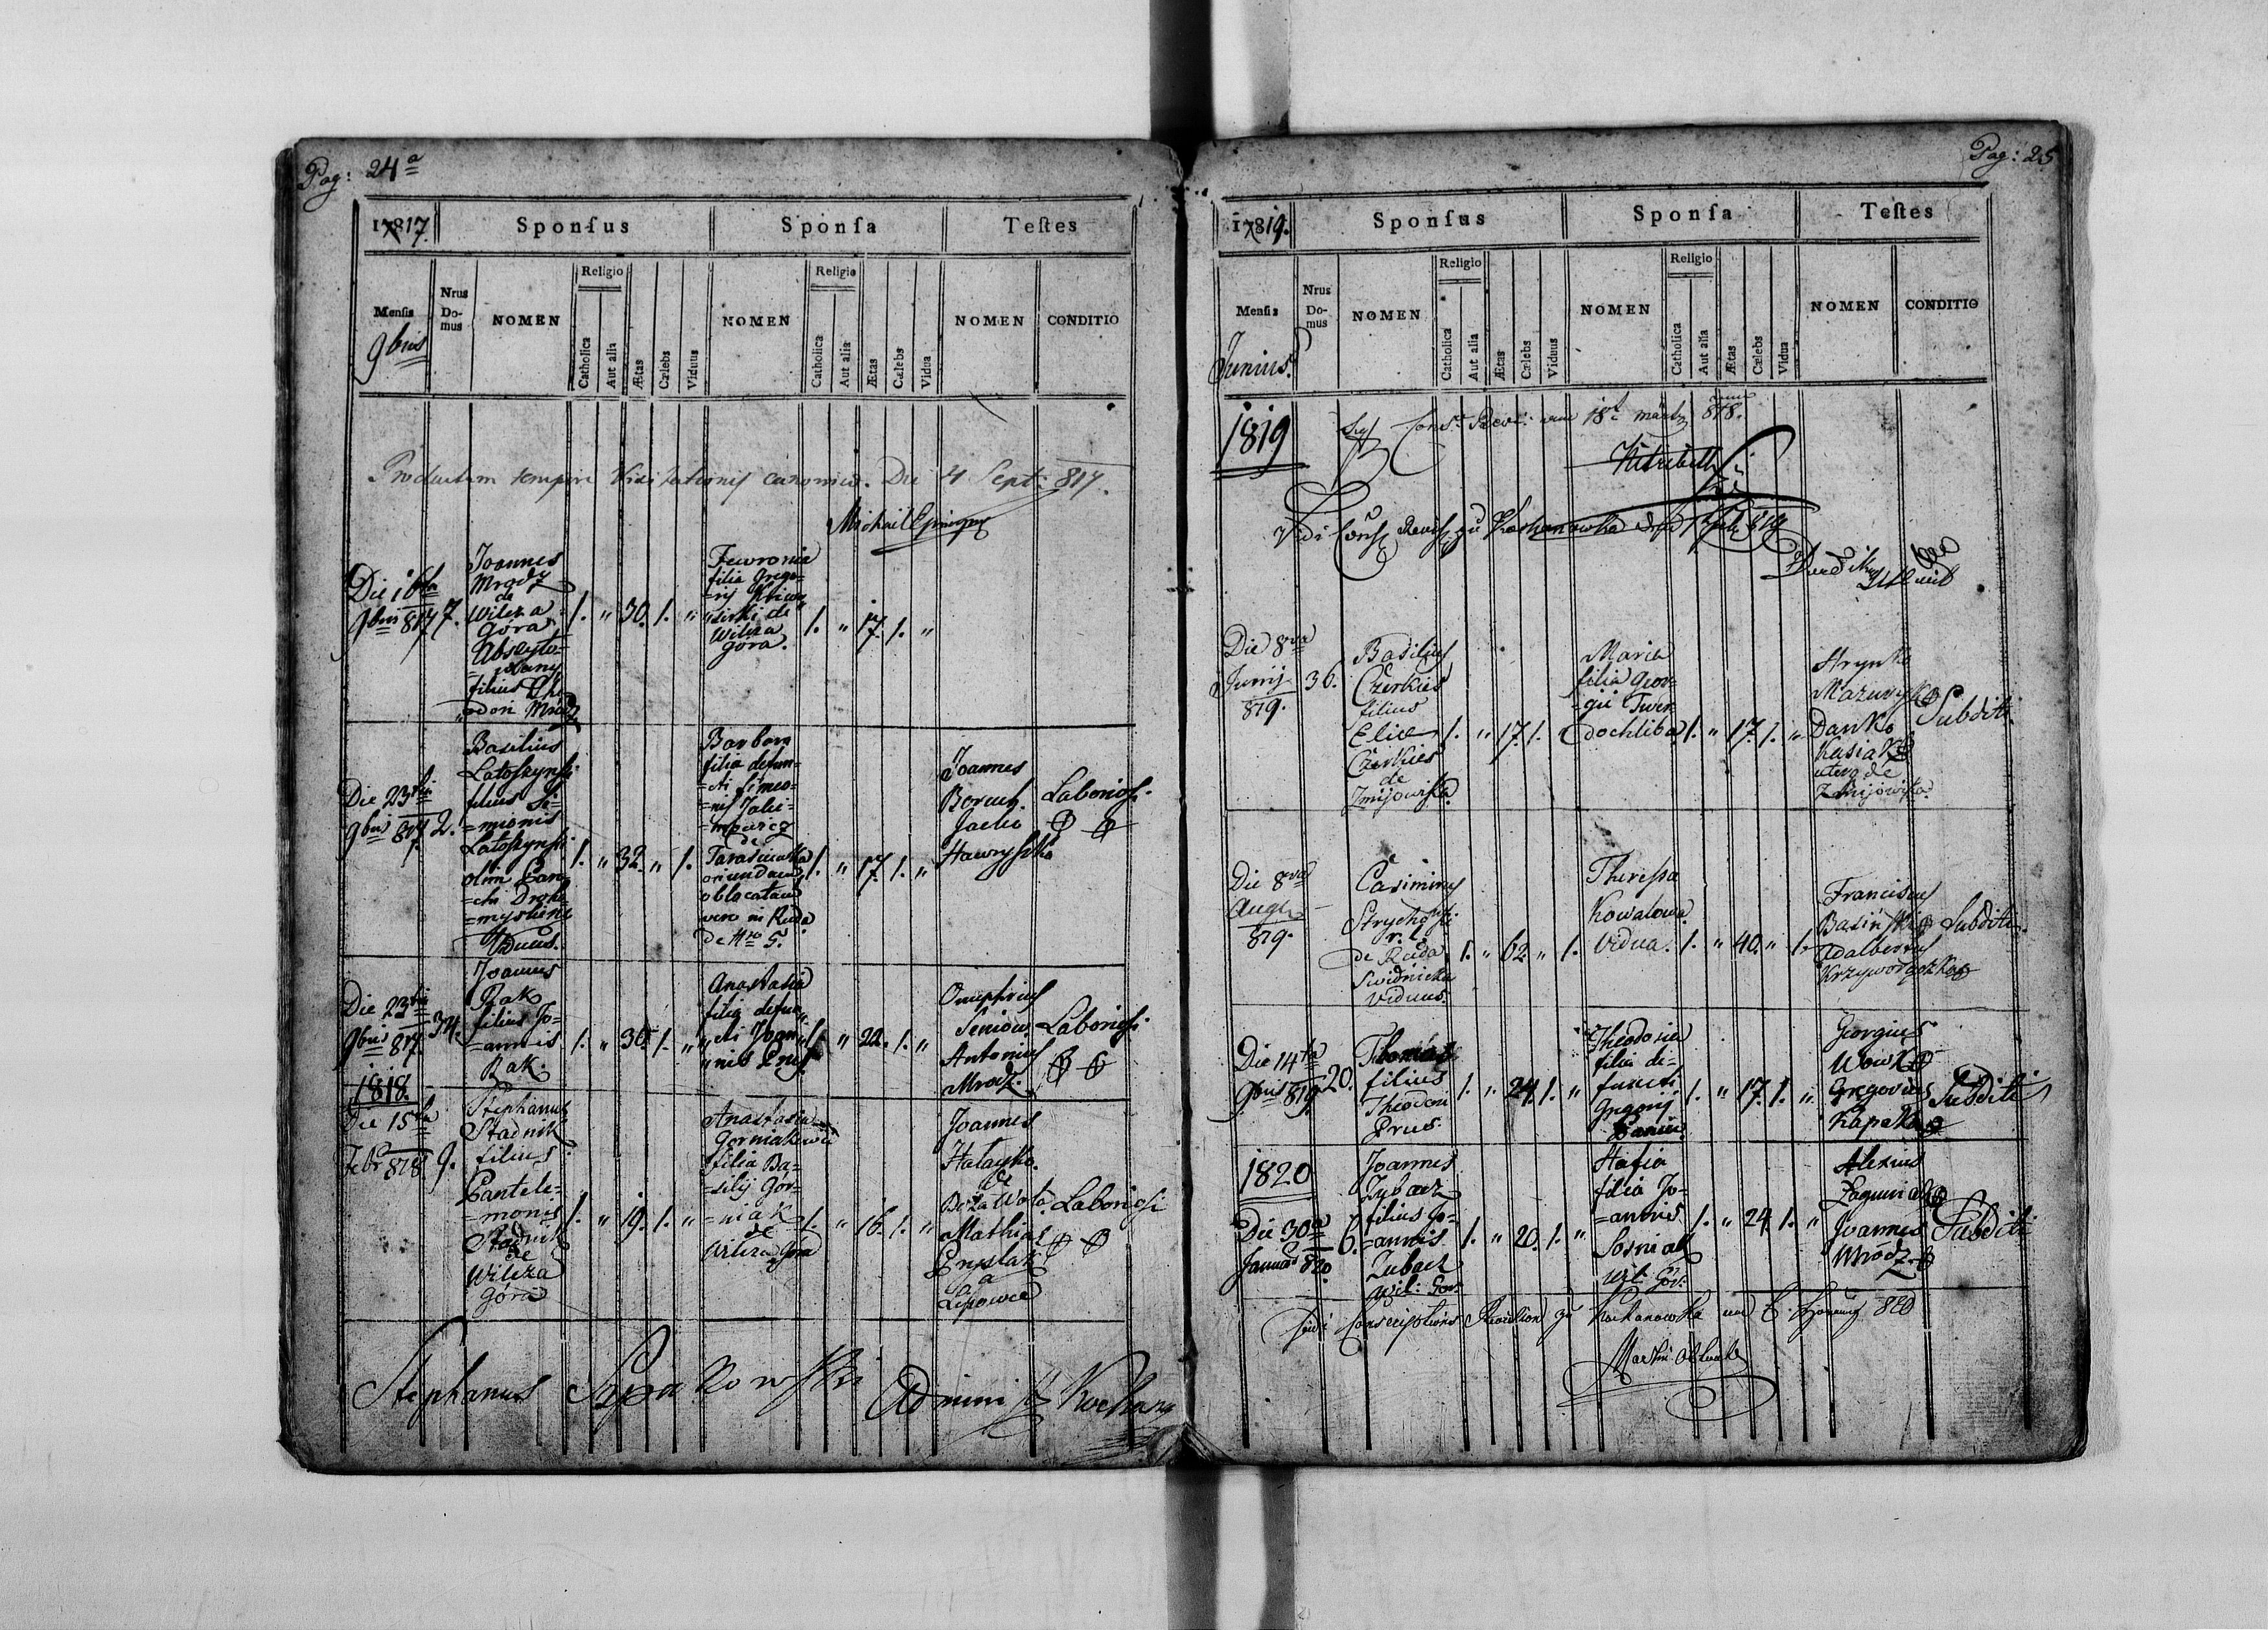 Pag: 24a
17817.
Sponsus
Sponsa
Testes
Mensis
9bris
Nrus Domus
NOMEN
Religio
Catholica
Aut alia
Ætas
Cælebs
Viduus
NOMEN
Religio
Catholica
Aut alia
Ætas
Cælebs
Vidua
NOMEN
CONDITIO
Productum tempore Visitationis canonicae. Die 4 Sept: 817.
Michaël Episcopus
Die 16ta
9bris 817
7.
Joannes
Mrodz
de
Wilcza
Gora
Abszyto=
=wany
filius
=odori Mrodz
1. " 30. 1. "
Fewronia
filia Grego=
=rij
de
Wilcza
gora.
1. " 17. 1. "
Die 23tia
9bris 817.
2.
Basilius
Latoszynski
filius Si=
=mionis
Latoszynski
olim
Viduus.
1. " 32. " 1.
Barbara
filia defun=
=cti Simeo=
=nis
de
oriunda
oblocata
vero in Ruda
de Nro 5.
1. " 17. 1. "
Joannes
Boruch.
Jacko
Hawryszko
Laboriosi
Die 23tia
9bris 817.
34.
Joannes
Rak
filius Jo=
=annis
Rak.
1. " 30. 1. "
Anastasia
filia defun=
=cti Joan=
=nis Prus
1. " 22. 1. "
Onuphrius
Seniow.
Antonius
Mrodz.
Laboriosi
1818.
Die 15ta
Febr 818.
9.
Stephanus
Stadnik
filius
Pantele=
=monis
Stadnik
de
Wilcza
Góra
1. " 19. 1. "
Anastasia
Gorniakowa
filia Ba=
=silij Gor=
=niak
de
Wilcza Góra
1. " 16. 1. "
Joannes
Hatayko.
de
Boża Wola
Mathias
Prystak
a
Lipowiec
Laboriosi
Stephanus Administr
Pag: 25
17819.
Sponsus
Sponsa
Testes
Mensis
Junius.
Nrus Domus
NOMEN
Religio
Catholica
Aut alia
Ætas
Cælebs
Viduus
NOMEN
Religio
Catholica
Aut alia
Ætas
Cælebs
Vidua
NOMEN
CONDITIO
1819
Cons: Revi: am 18t märtz 818.
Vidi Consc Revis zu Kochanowka
Die 8va
Junij
819.
36.
Basilius
Czerkies
filius
Eliae
Czerkies
de
Zmijowiska.
1. " 17. 1. "
Maria
filia Geor=
=gii Twer=
dochliba
1. " 17. 1. "
Hrynko
Mazuryk
Danko
Kusiak
uterq de
Zmijowiska.
Subditi.
Die 8va
Aug
819.
Casimirus
Strychowski
r. l.
de Ruda
Swidnicka
Viduus.
1. " 62. " 1.
Theressa
Kowalowa
Vidua.
1. " 40. " 1.
Franciscus
Basiński
Adalbertus
Krzyworączka
Subditi.
Die 14ta
9bris 819.
20.
Thomas
filius
Theodori
Prus.
1. " 24. 1. "
Theodosia
filia de=
functi
Gregorij
1. " 17. 1. "
Georgius
Wowk
Gregorius
Kapaka
Subditi
1820
Die 30a
Januar 820.
6.
Joannes
Zybacz
filius Jo=
=annis.
Zubacz
Wil: Gor.
1. " 20. 1. "
Stasia
filia Jo=
=annis.
Sosniak
Wil: Gór:
1. " 24. 1. "
Alexius
Joannes
Mrodz.
Subditi
Vidi Conscriptions Revision zu Kochanowka 820